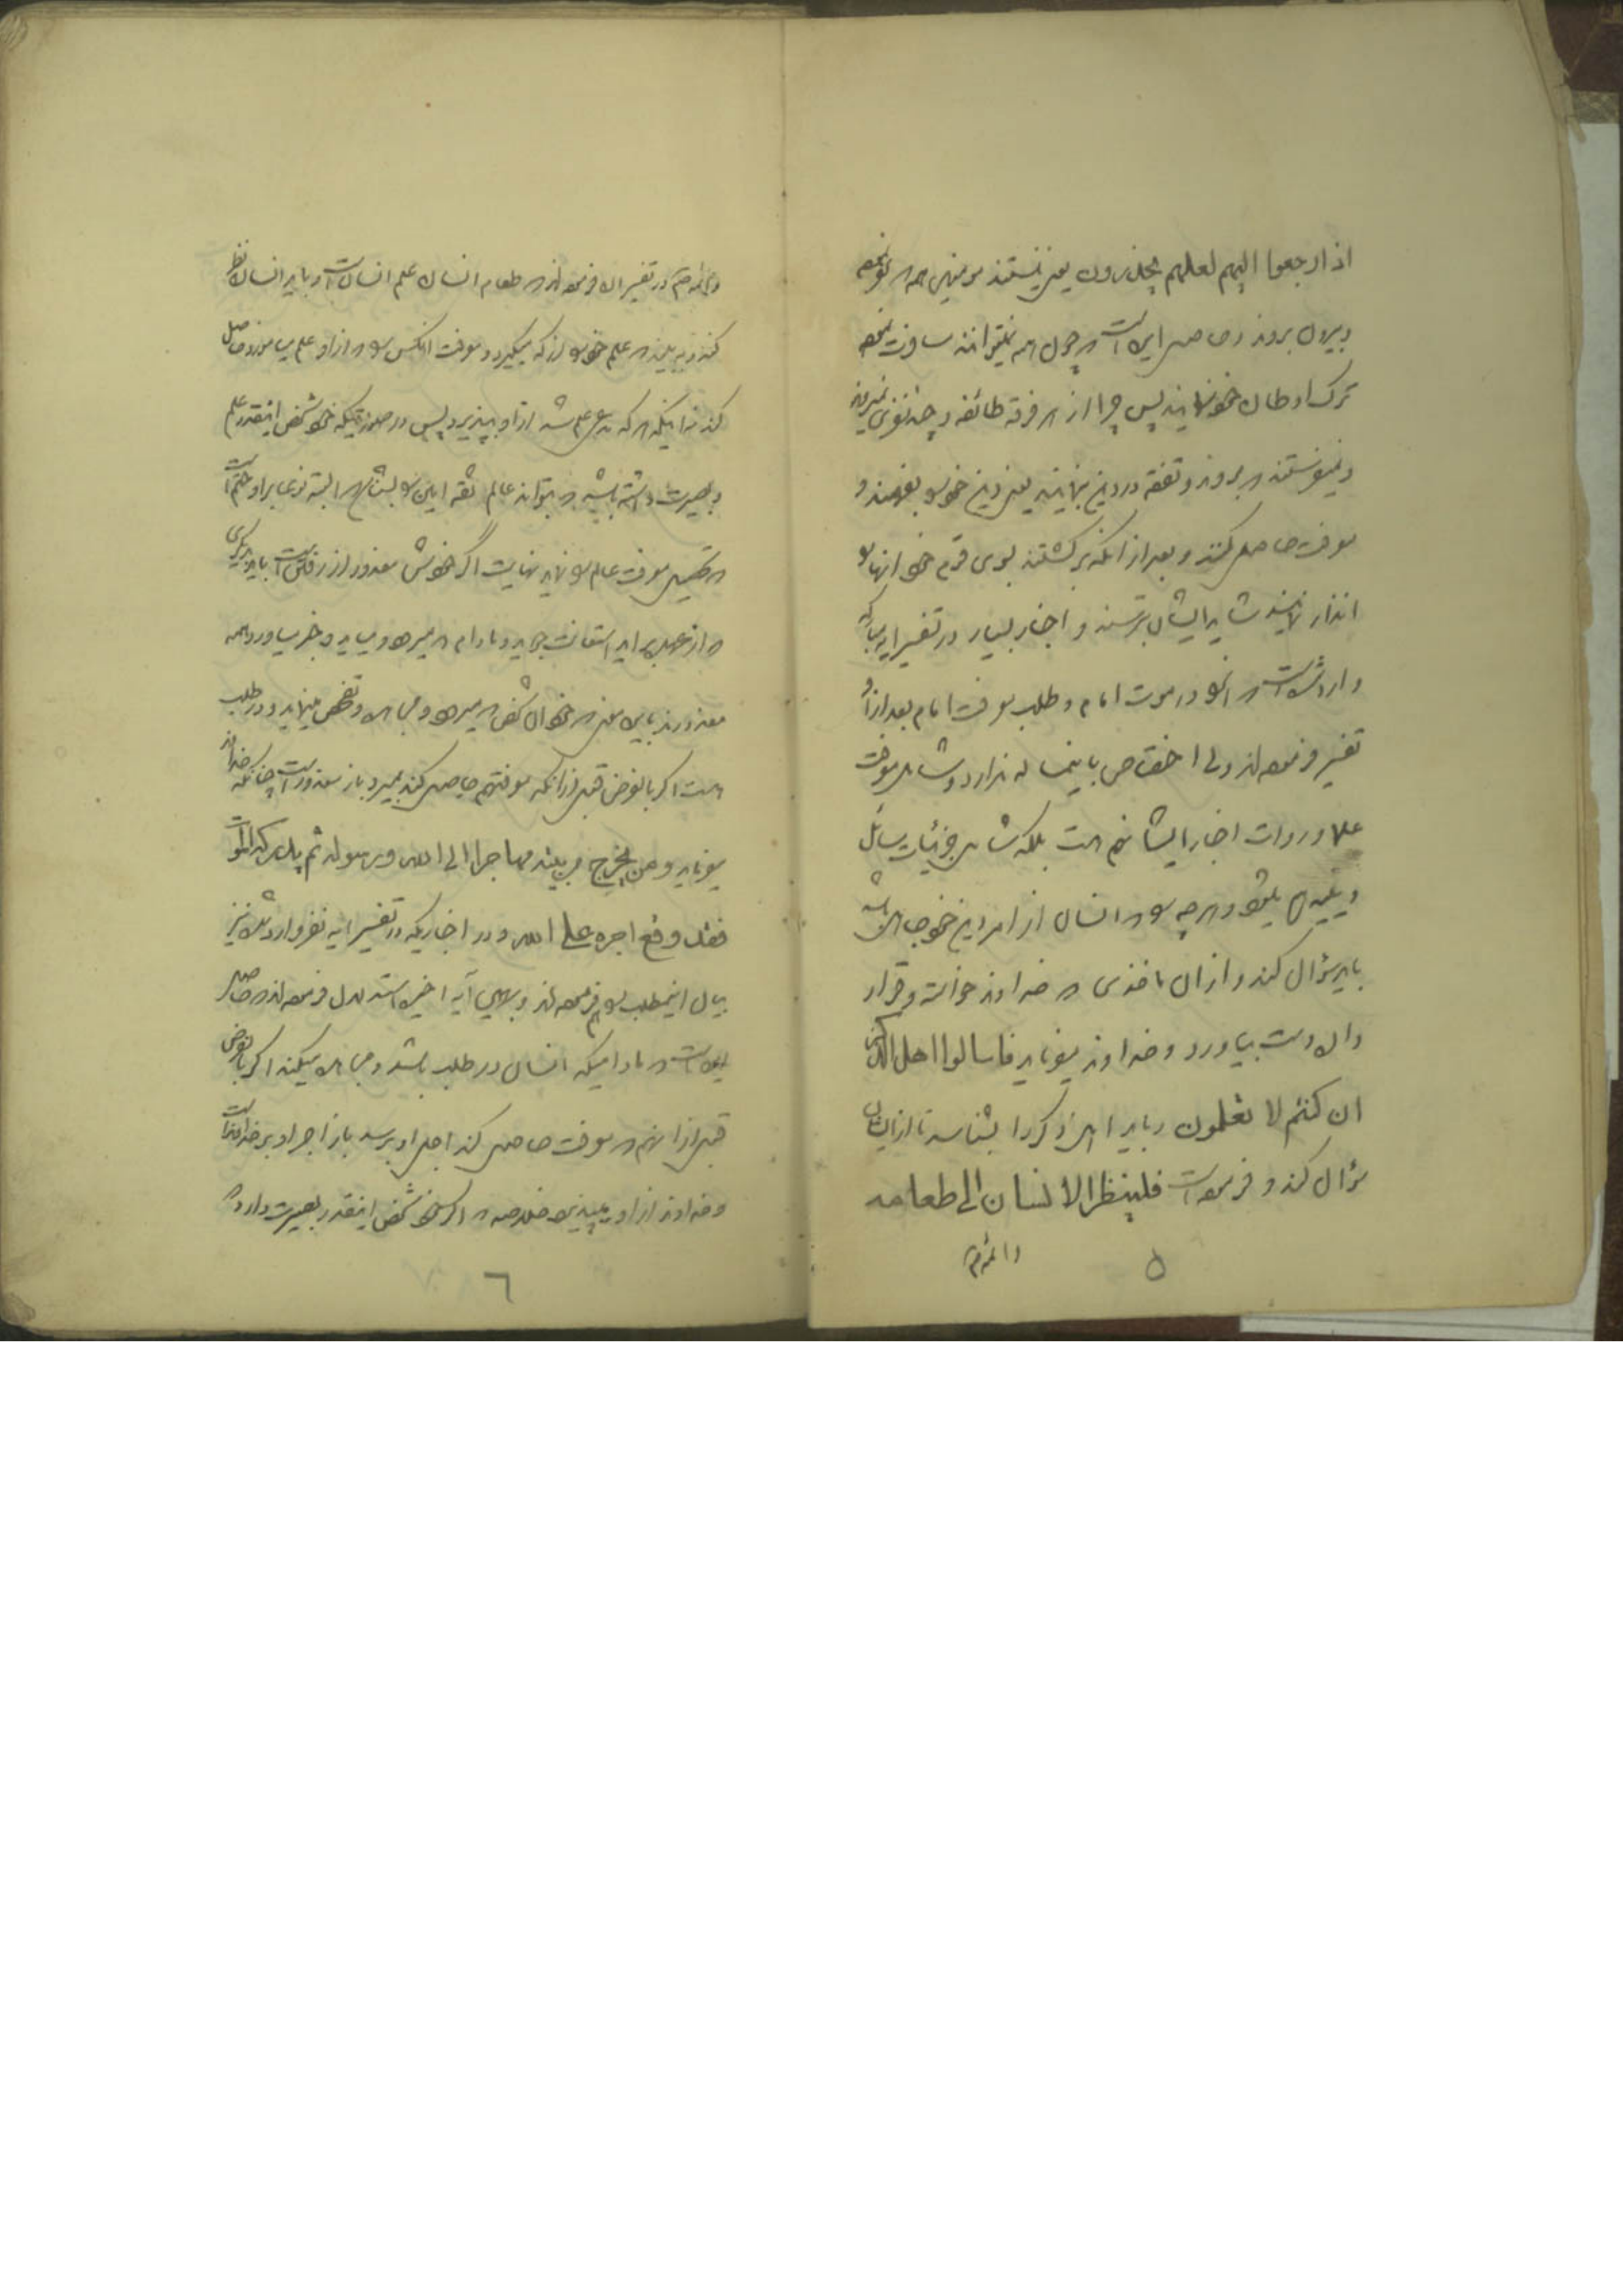 اذا رجعوا الیهم لعلهم یحذرون یعنی نیستند مومنین همه که کوچ نموده
و بیرون بروند و حاصل این است که چون همه نمیتوانند مسافرت نموده
ترک اوطان خود نمایند پس چرا از هر فرقه طائفه و چند نفری نمیروند
و نمیفرستند که بروند و تفقه در دین نمایند یعنی دین خود را بفهمند و
معرفت حاصل کنند و بعد از آنکه برگشتند بسوی قوم خود آنها را
انذار نمایند شاید ایشان بترسند و اخبار بسیار در تفسیر این آیه
وارد شده است که آنرا در موت امام و طلب معرفت امام بعد از او
تفسیر فرموده‌اند ولی اختصاص باینمساله ندارد و شامل معرفت
علما و روات اخبار ایشان هم هست بلکه شامل جزئیات مسائل
دینیه هم میشود و هر چه را که انسان از امر دین خود جاهل باشد
باید سؤال کند و از آن ماخذی که خداوند خواسته و قرار
داده بدست بیاورد و خداوند میفرماید فاسالوا اهل الذکر
ان کنتم لا تعلمون و باید اهل ذکر را بشناسد تا از ایشان
سؤال کند و فرموده است فلینظر الانسان الی طعامه
و ائمه
۵
و ائمه در تفسیر آن فرموده‌اند که طعام انسان علم انسان است و باید انسان نظر
کند و ببیند که علم خود را از که میگیرد و معرفت آنکس را که از او علم میاموزد حاصل
کند نه اینکه هر که مدعی علم شد از او بپذیرد پس در صورتیکه خود شخص اینقدر علم
و بصیرت داشته باشد که بتواند عالم ثقه امین را بشناسد البته شرعا بر او حتم است
که تحصیل معرفت عالم را نماید نهایت اگر خودش معذور از رفتن است باید دیگری
که از عهده برآید استعانت بجوید و مادام که میرود و میاید و خبر میاورد همه
معذورند باین معنی که خود آن شخص که میرود و مجاهده و تفحص مینماید و در طلب
هست اگر بالفرض قبل از آنکه معرفتهم حاصل کند بمیرد باز معذور است چنانکه خداوند
میفرماید و من یخرج من بیته مهاجرا الی الله و رسوله ثم یدرکه الموت
فقد وقع اجره علی الله و در اخباریکه در تفسیر آیه نفر وارد شده نیز
بیان اینمطلب را فرموده‌اند و بهمین آیه اخیره استدلال فرموده‌اند که حاصل
این است که مادامیکه انسان در طلب باشد و مجاهده میکند اگر بالفرض
قبل از آنهم که معرفت حاصل کند اجل او برسد باز اجر او بر خداوند است
و خداوند از او میپذیرد خلاصه که اگر خود شخص اینقدر بصیرت دارد که
٦